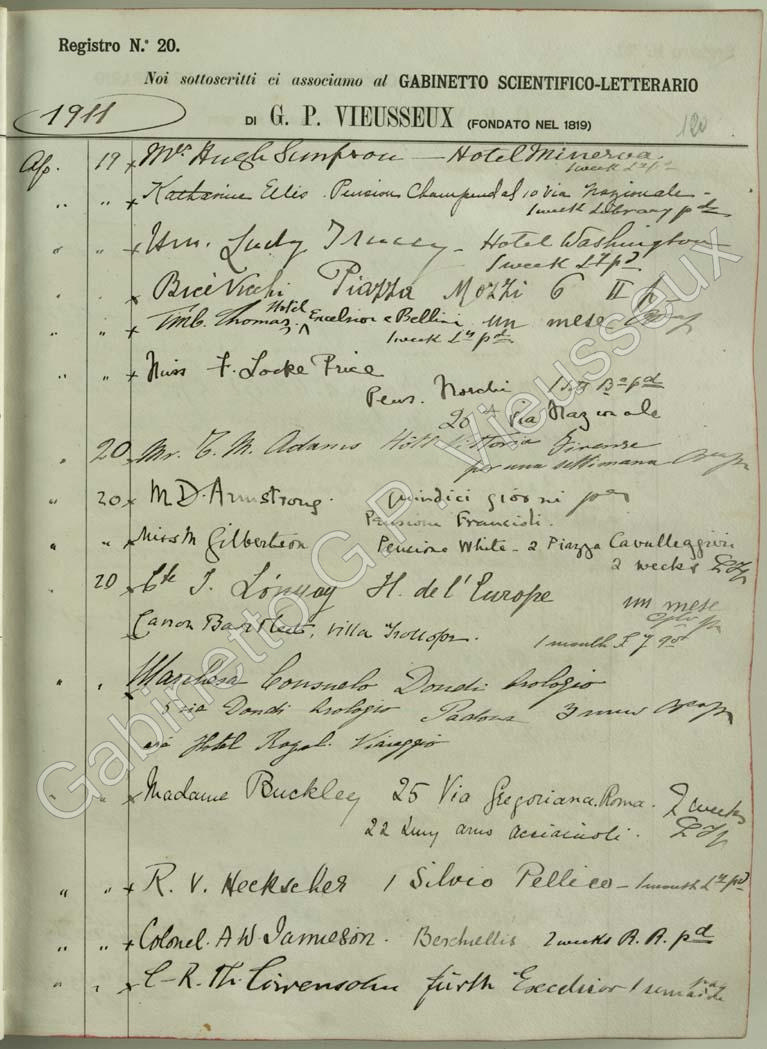 Registro N.° 20.
Noi sottoscritti ci associamo al GABINETTO SCIENTIFICO-LETTERARIO
1911 DI G. P. VIEUSSEUX (FONDATO NEL 1819) 120
Ap. 19 x Mrs Hugh — Hotel Minerva.
1 week
" " x Katharine Ellis. Pension Champendal 10 Via Nazionale -
1 week Library pd
" " x Hon. Lady - Hotel Washington
1 week pd
" x Bice Vicchi Piazza Mozzi 6 II p
" " x Thomas, Hotel Excelsior e Bellini un mese
1 week pd
" " x Miss F. Locke Price
Pens. 1 pd
20 Via Nazionale
" 20 x Mr. T. M. Adams Hôtel Vittoria Firenze
per una settimana
" 20 x M. D. Armstrong. quindici giorni
Pensione Francioli.
" " x Miss M Gilbertson Pensione White - 2 Piazza Cavalleggieri
2 weeks
20 x Cte H. de l'Europe
un mese
Canon Villa Trollope. 1 month
" " Marchesa Consuelo Dondi Orologio
5 via Dondi Orologio Padova 3
Hotel Royal. Viareggio
" " x Madame Buckley 25 Via Gregoriana. Roma. 2 weeks
22 Lung arno acciaiuoli.
" " x R. V. Heckscher 1 Silvio Pellico - 1 month pd
" " x Colonel. A W Jamieson. Berchiellis 2 weeks R. R. pd
" " x Fürth Excelsior 1
Gabinetto G.P. Vieusseux